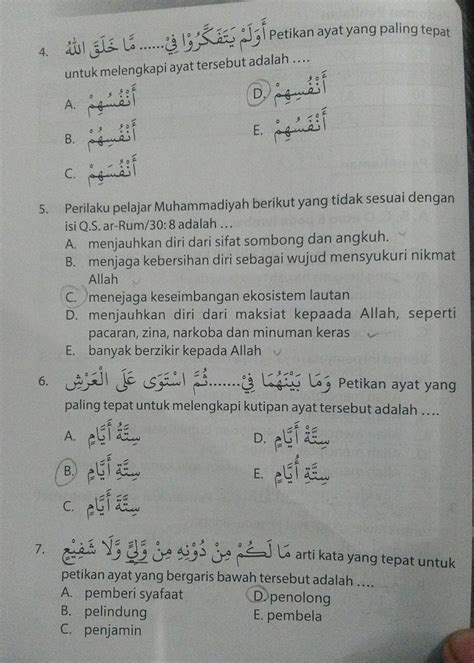 4. أَوَلَمْ يَتَفَكَّرُوْا فِيْ ...... مَا خَلَقَ اللّٰهُ Petikan ayat yang paling tepat
untuk melengkapi ayat tersebut adalah ....
A.
B.
C.
D. أَنْفُسِهِمْ
E.
5. Perilaku pelajar Muhammadiyah berikut yang tidak sesuai dengan
isi Q.S. ar-Rum/30: 8 adalah ...
A. menjauhkan diri dari sifat sombong dan angkuh.
B. menjaga kebersihan diri sebagai wujud mensyukuri nikmat
Allah
C. menejaga keseimbangan ekosistem lautan
D. menjauhkan diri dari maksiat kepaada Allah, seperti
pacaran, zina, narkoba dan minuman keras
E. banyak berzikir kepada Allah
6. وَمَا بَيْنَهُمَا فِيْ.......ثُمَّ اسْتَوَى عَلَى الْعَرْشِ Petikan ayat yang
paling tepat untuk melengkapi kutipan ayat tersebut adalah ....
A. سِتَّةُ أَيَّامٍ
B. سِتَّةِ أَيَّامٍ
C. سِتَّةَ أَيَّامٍ
D. سِتَّةْ أَيَّامٍ
E. أَيَّامٍ
7. مَا لَكُمْ مِنْ دُوْنِهِ مِنْ وَّلِيٍّ وَّلَا شَفِيْعٍ arti kata yang tepat untuk
petikan ayat yang bergaris bawah tersebut adalah ....
A. pemberi syafaat
B. pelindung
C. penjamin
D. penolong
E. pembela